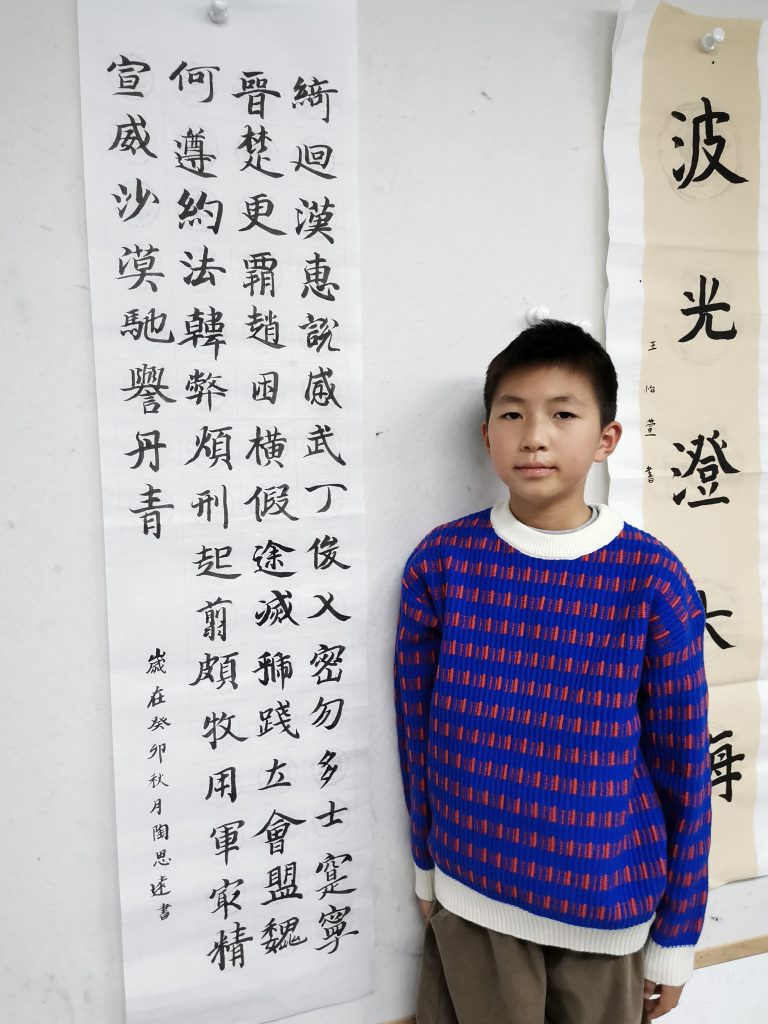 綺迴漢惠說感武丁俊乂密勿多士寔寧
晉楚更霸趙困橫假途滅虢踐土會盟魏
何遵約法韓弊煩刑起翦頗牧用軍㝡精
宣威沙漠馳譽丹青
歲在癸卯秋月陶思逺書
波光澄
王怡萱書